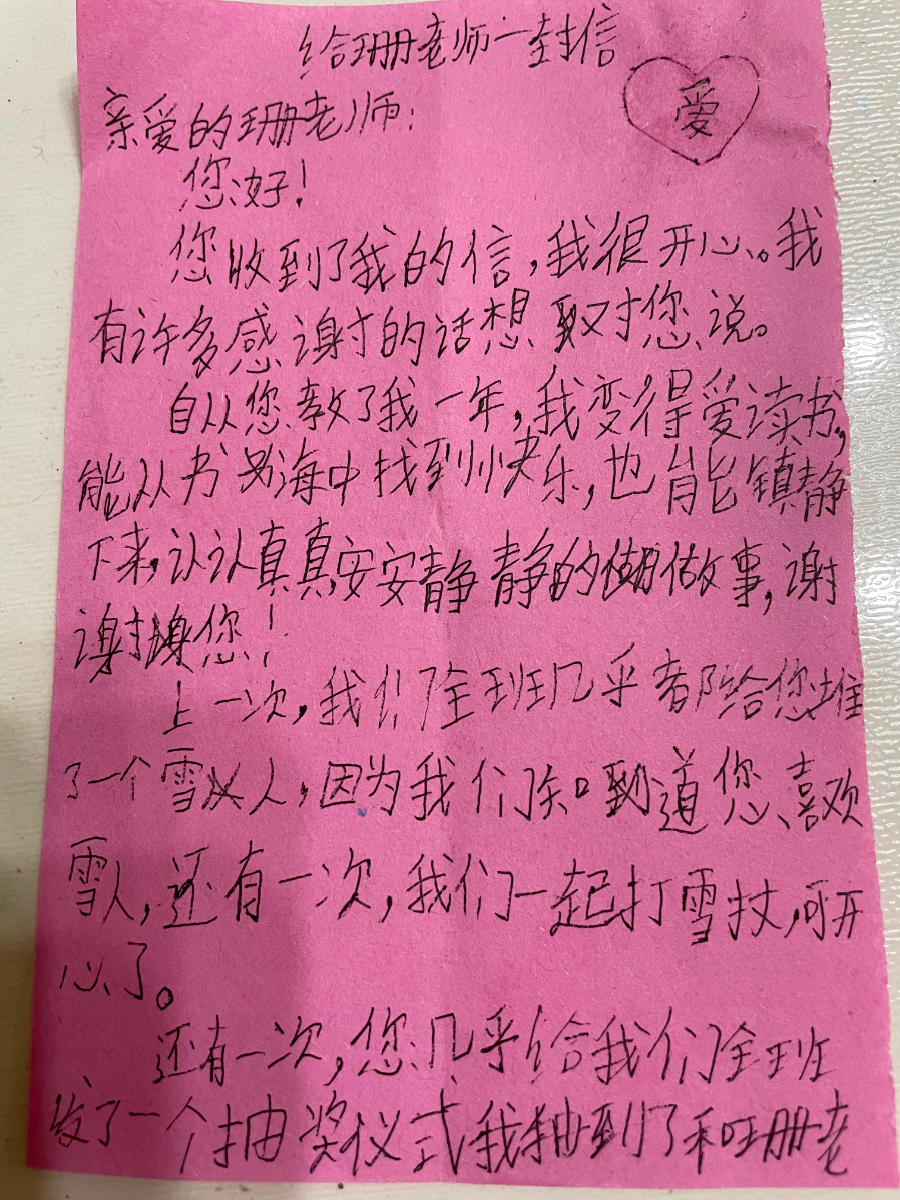 给珊老师一封信
爱
亲爱的珊老师:
您好!
您收到了我的信,我很开心。我
有许多感谢的话想对您说。
自从您教了我一年,我变得爱读书,
能从书海中找到快乐,也能镇静
下来,认认真真,安安静静的做事,谢
谢您!
上一次,我们全班几乎都给您堆
了一个雪人,因为我们知道您喜欢
雪人,还有一次,我们一起打雪扙,可开
心了。
还有一次,您几乎给我们全班
发了一个抽奖仪式我抽到了和珊老